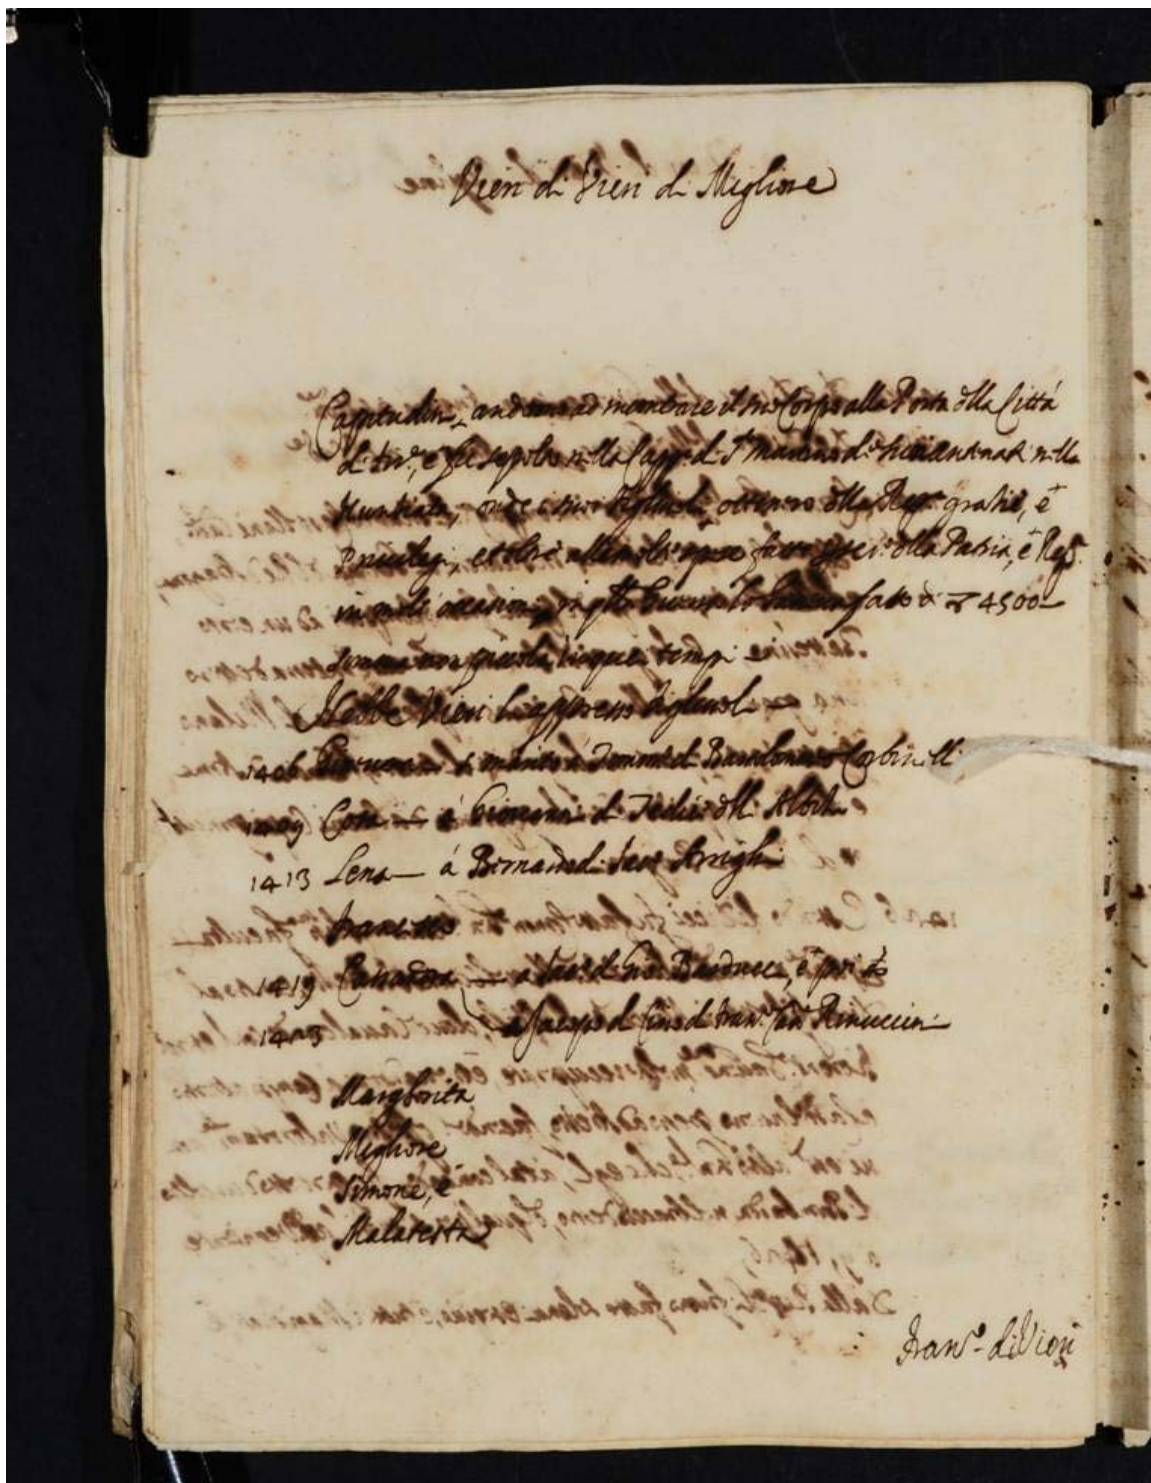 Vieri di Vieri di Migliore
Capitudini andarono ad incontrare il suo Corpo alla Porta della Città
di e fu sepolto nella Capp. di nella
Nuntiata, onde i suoi figliuoli ottennero dalla Rep. gratie, è
Privilegi, et oltre alle molte spese fatte della Patria, è Rep.
in molte occasioni, fatto di 4500
somma non piccola in que tempi
Hebbe Vieri li appresso figliuoli
1406 Giovanna maritò à di Bartolomeo Corbinelli
1409 Cosa à Giovanni di Tedice delli Albizi
1413 Lena à Bernardo di Iaco Arrighi
Francesco
1419 Caterina a di Gio. Barducci, è poi
1423 a Jacopo di Cino di Fran.co Rinuccini
Margherita
Migliore
Simone, è
Malatesta
Fran.co di Vieri